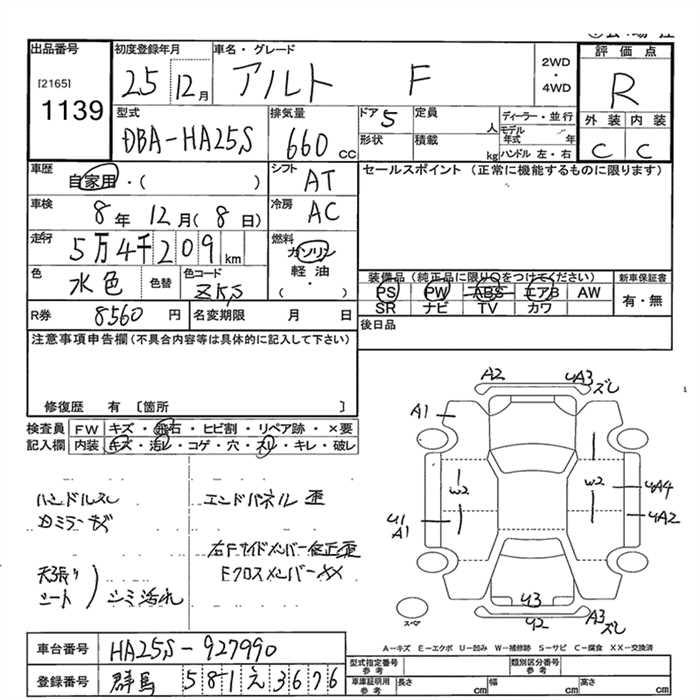 出品番号
[2165]
1139
初度登録年月
25 12月
車名・グレード
アルト F
2WD
・
4WD
評価点
R
外装 内装
C C
型式
DBA-HA25S
排気量
660 cc
ドア 5
定員 人
形状
積載 kg
ディーラー・並行
モデル年式 年
ハンドル 左・右
車歴
自家用・( )
シフト AT
セールスポイント (正常に機能するものに限ります)
車検
8年 12月(8日)
冷房 AC
走行
5万4千209km
燃料
ガソリン
軽油
( ・ )
色
水色
色替
色コード
Z5S
装備品(純正品に限り○をつけてください)
PS PW ABS エアB AW
SR ナビ TV カワ
新車保証書
有・無
R券 8560円
名変期限 月 日
後日品
注意事項申告欄(不具合内容等は具体的に記入して下さい)
修復歴 有 [箇所 ]
検査員記入欄
FW キズ・飛石・ヒビ割・リペア跡・×要
内装 キズ・汚レ・コゲ・穴・スレ・キレ・破レ
ハンドルスレ
カミラーキズ
天張り
シート
シミ汚れ
エンドパネル歪
右Fサイドメンバー修正歪
Eクロスメンバーxx
A2
UA3
ズレ
A1
W2
W2
UA4
UA2
U1
A1
U3
U2
A3
ズレ
スペア
A-キズ E-エクボ U-凹み W-補修跡 S-サビ C-腐食 XX-交換済
車台番号 HA25S-927990
登録番号 群馬 581 え 3676
型式指定番号
参考
類別区分番号
参考
車庫証明用
参考
長さ cm
幅 cm
高さ cm